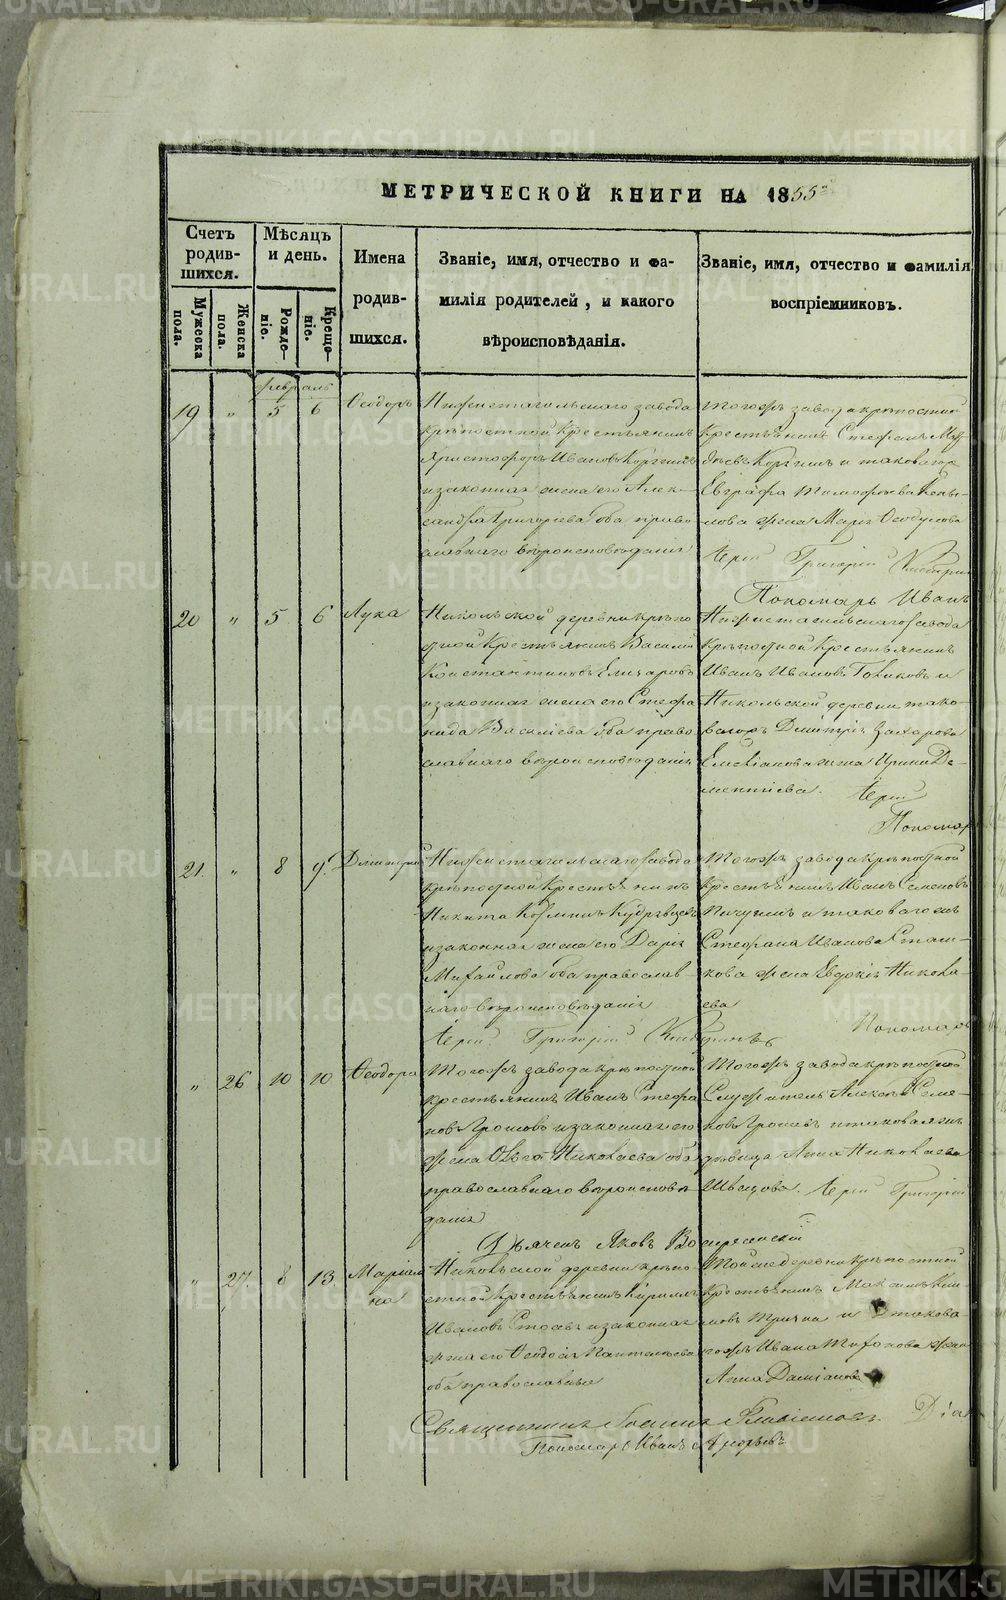 МЕТРИЧЕСКОЙ КНИГИ НА 1855
Счетъ родившихся.
Мужеска пола.
Женска пола.
Мѣсяцъ и день.
Рожденіе.
Крещеніе.
Имена родившихся.
Званіе, имя, отчество и фамилія родителей, и какого вѣроисповѣданія.
Званіе, имя, отчество и фамилія воспріемниковъ.
февраль
19 " 5 6 Ѳеодоръ
Нижнетагильскаго завода
крѣпостной крестьянинъ
Христофоръ Ивановъ
и законная жена его Алек-
сандра Григорьева оба право
славнаго вѣроисповѣданія
Тогожъ завода крѣпостной
крестьянинъ Стефанъ
и таковагожъ
Евграфа Тимофѣева
жена Марія
Іерей Григорій
Пономарь Иванъ
20 " 5 6 Лука
Никольской деревни крѣпо
стной крестьянинъ Василій
Константиновъ Елизаровъ
и законная жена его Стефа
нида Василіева оба право
славнаго вѣроисповѣданія
Нижнетагильскаго завода
крѣпостной крестьянинъ
Иванъ Ивановъ и
Никольской деревни тако-
вагожъ Дмитрія Захарова
Емеліанова жена Ирина Де-
ментіева. Іерей
Пономарь
21. " 8 9. Дмитрій
Нижнетагильскаго завода
крѣпостной крестьянинъ
Никита Козминъ Кудрявцевъ
и законная жена его Дарія
Михайлова оба православ
наго вѣроисповѣданія
Іерей Григорій
Тогожъ завода крѣпостной
крестьянинъ Иванъ Семеновъ
Пичугинъ и таковагожъ
Стефана Иванова Сташ-
кова жена Евдокія Никола
ева
Пономарь
" 26 10 10 Ѳеодора
Тогожъ завода крѣпостной
крестьянинъ Иванъ Стефа
новъ и законная его
жена Ольга Николаева оба
православнаго вѣроисповѣ
данія
Тогожъ завода крѣпостной
Служитель Алексѣй Семе-
новъ и таковаяжъ
дѣвица Анна Николаева
Швецова. Іерей Григорій
Дьячекъ Яковъ Воскресенскій
" 27. 8 13 Маріам
на
Никольской деревни крѣпо
стной крестьянинъ Кириллъ
Ивановъ и законная
жена его Ѳеодосія Пантелѣева
оба православные
Тойже деревни крѣпостной
крестьянинъ Максимъ
и таковагожъ Ивана Тифонова жена
Анна Даміанова
Священникъ Іоаннъ Флавіановъ. Діак
Пономарь Иванъ